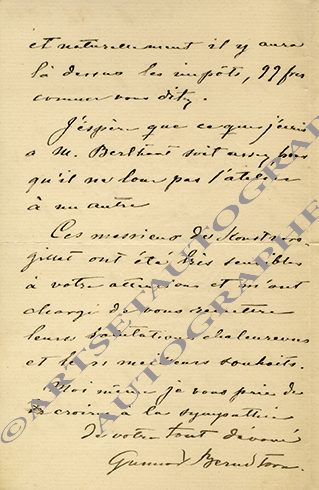 et naturellement il y aura
là dessus les impôts, 99 frs
comme vous dites.
J'éspère que ce que j'écris
a M. Berthant soit assez pour
qu'il ne loue pas l'atelier
à un autre
Ces messieurs de
ont été très sensibles
à votre attention et m'ont
chargé de vous remettre
leurs salutations chaleureuses
et leurs meilleurs souhaits.
Moi même je vous prie de
croire à la sympathie
de votre tout dévoué
Gunnar Berndtson.
©ARTSETAUTOGRAPHES
AUTOGRAPHE